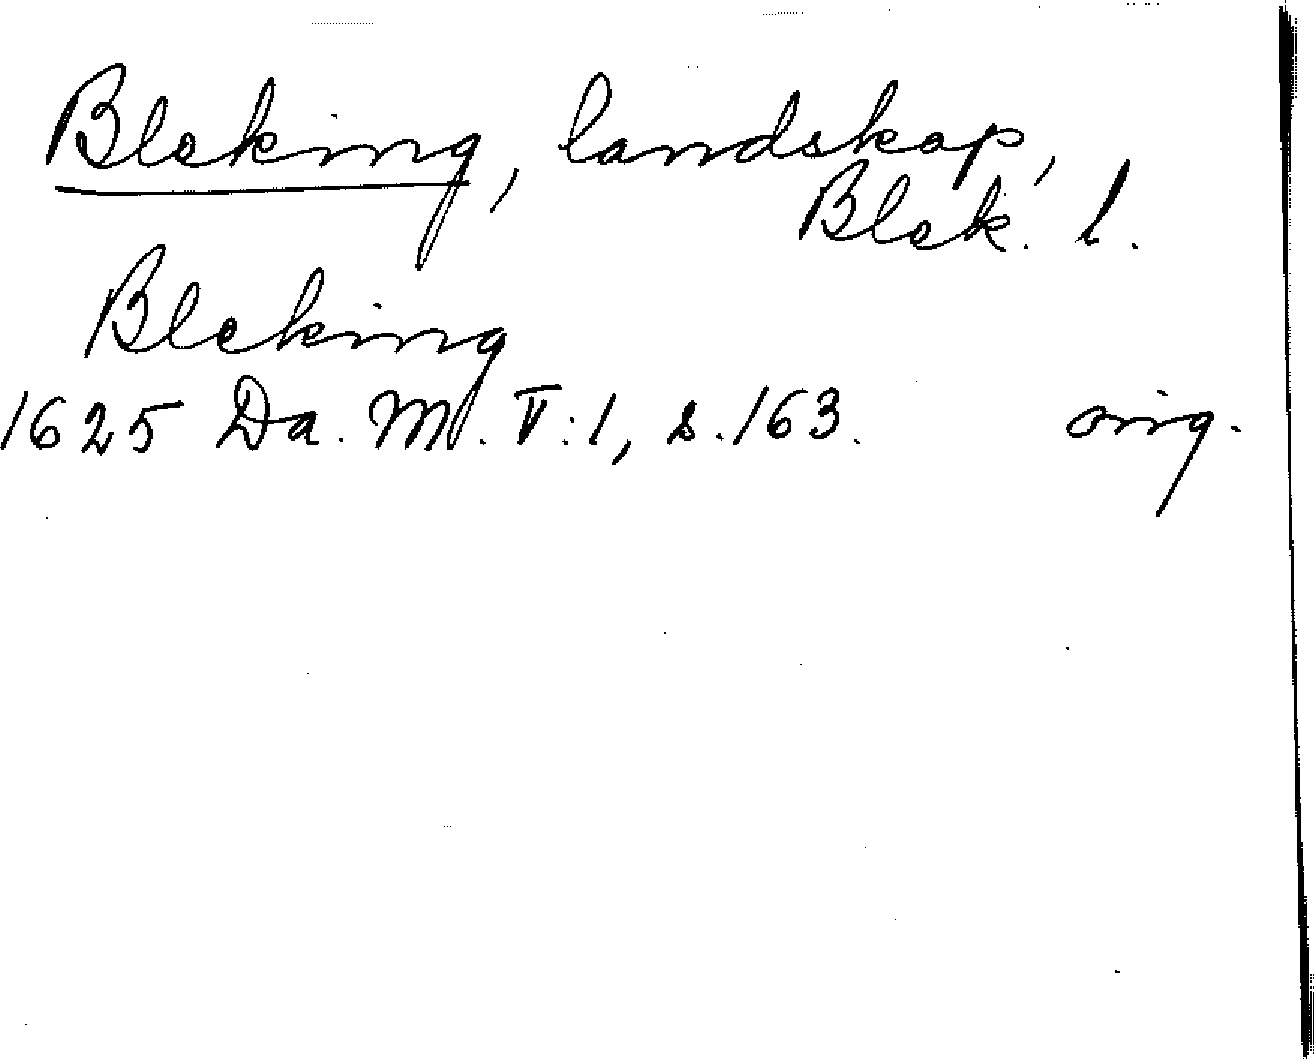 Bleking, landskap,
Blek. l.
Bleking
1625 Da. M. V:1, s. 163. orig.